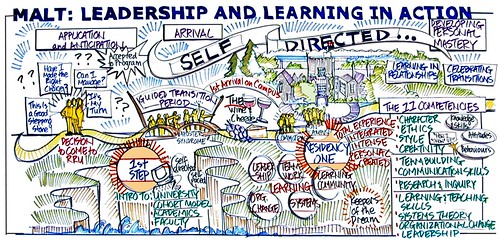 MALT: LEADERSHIP AND LEARNING IN ACTION
APPLICATION
and ANTICIPATION
ARRIVAL
DEVELOPING
PERSONAL
MASTERY
SELF DIRECTED...
Accepted
Program
Have I
Made the
Right
Choice?
Can I
Manage?
It's
My
Turn
This is
a Good
Stepping
Stone
DECISION
to COME to
RRU
GUIDED TRANSITION
PERIOD
SYNDROME
1st Arrival on Campus
The
Wine &
Cheese
LEARNING IN
RELATIONSHIPS
CELEBRATING
TRANSITIONS
1ST
STEP
Self
directed
INTRO TO:
UNIVERSITY
COHORT MODEL
ACADEMICS
FACULTY
RESIDENCY
ONE
EXPERIENCE
INTEGRATED
INTENSE
PERSONAL
CREATED
LEADER
SHIP
TEAM
WORK
LEARNING
ORG.
CHANGE
SYSTEMS
LEARNING
COMMUNITY
Keepers
of the
Dream
THE 11 COMPETENCES
CHARACTER
ETHICS
STYLE
CREATIVITY
Knowledge
Skills
Attitudes
Behaviours
TEAM BUILDING
COMMUNICATION SKILLS
RESEARCH & INQUIRY
LEARNING & TEACHING
SKILLS
SYSTEMS THEORY
ORGANIZATIONAL CHANGE
LEADERSHIP